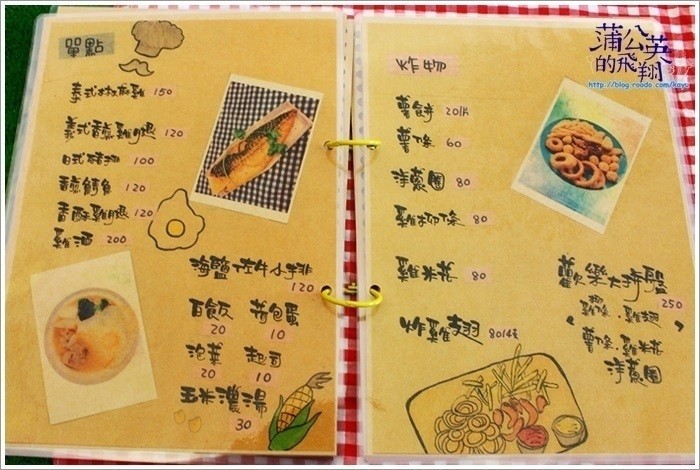 單點
義式椒麻雞 150
義式香煎雞腿 120
日式豬排 100
香煎鯖魚 120
香酥雞腿 120
雞酒 200
海鹽 牛小排
120
白飯 荷包蛋
20 10
泡菜 起司
20 10
玉米濃湯
30
蒲公英
的飛翔
http://blog.roodo.com/kayu
炸物
薯餅 20/片
薯條 60
洋蔥圈 80
雞柳條 80
雞米花 80
炸雞翅 80/4支
歡樂大拼盤
250
雞翅
薯條.雞米花
洋蔥圈